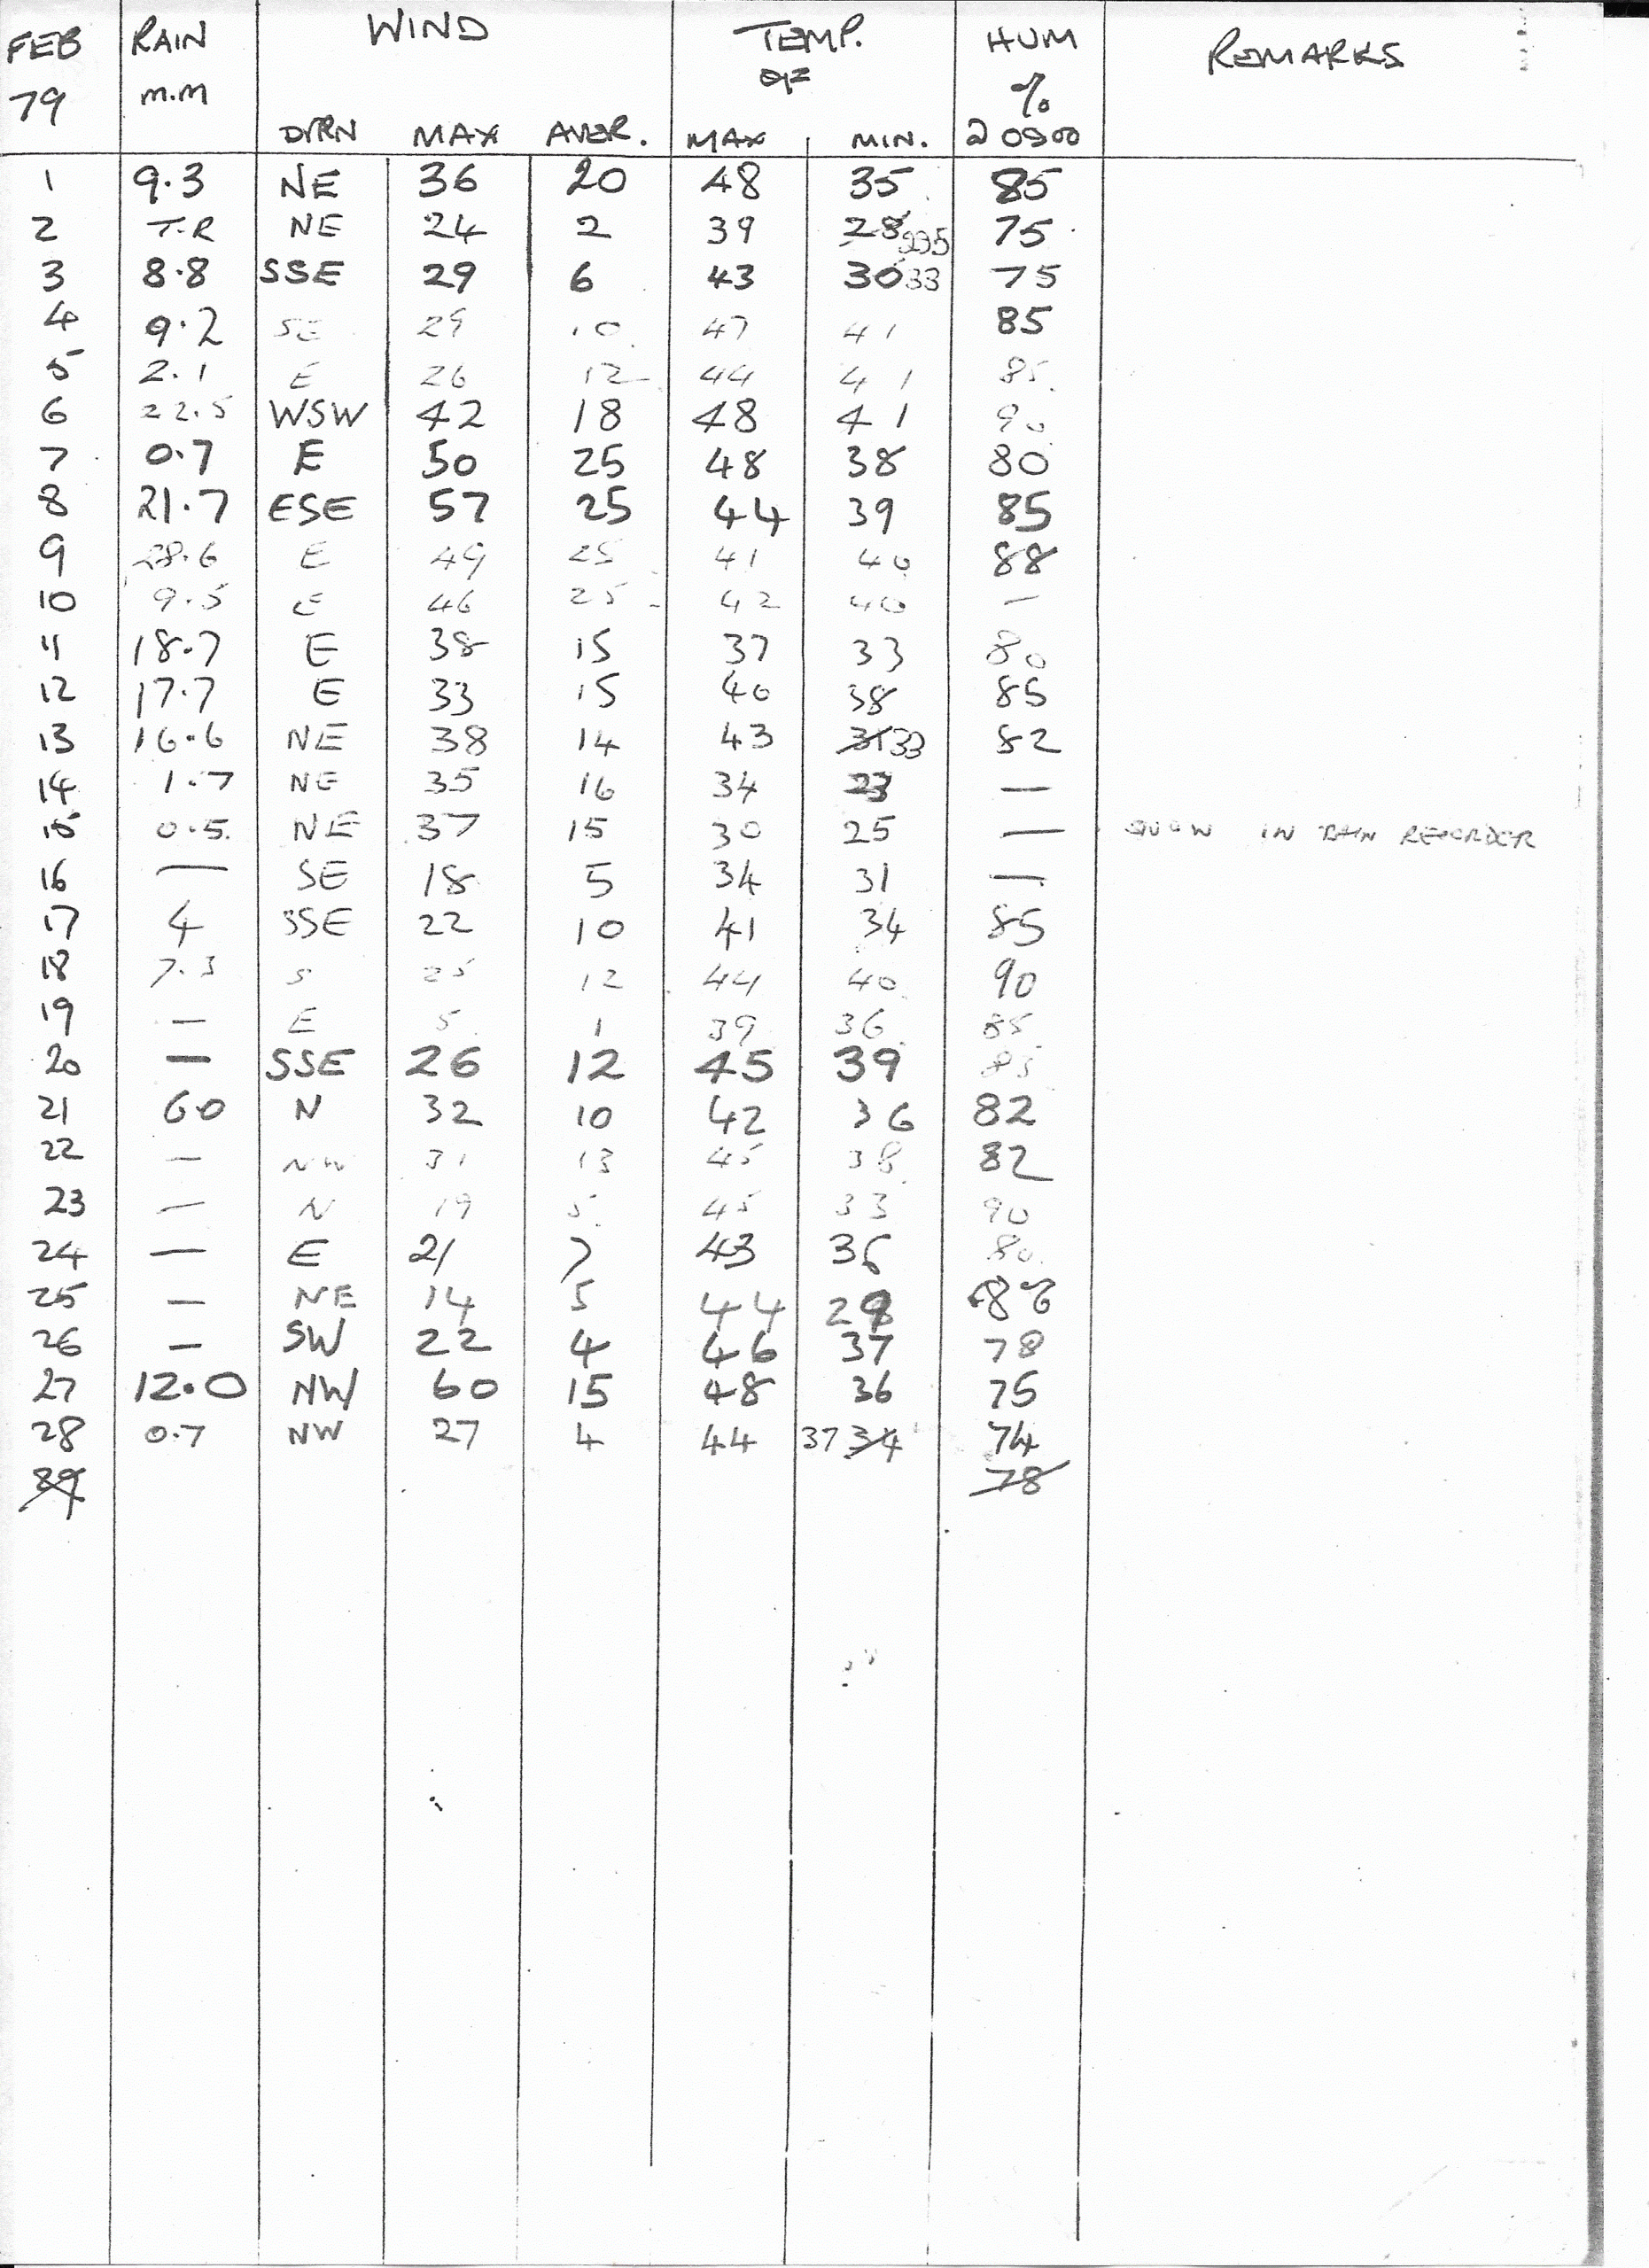 FEB RAIN WIND TEMP. HUM REMARKS
79 m.m °F %
DIRN MAX AVER. MAX MIN. @ 0900
1 9.3 NE 36 20 48 35 85
2 T.R NE 24 2 39 28 75
3 8.8 SSE 29 6 43 30 33 75
4 9.2 SE 29 10 47 41 85
5 2.1 E 26 12 44 41 85
6 22.5 WSW 42 18 48 41 90
7 0.7 E 50 25 48 38 80
8 21.7 ESE 57 25 44 39 85
9 28.6 E 49 25 41 40 88
10 9.5 E 46 25 42 40 —
11 18.7 E 38 15 37 33 80
12 17.7 E 33 15 40 38 85
13 16.6 NE 38 14 43 31 33 82
14 1.7 NE 35 16 34 23 —
15 0.5 NE 37 15 30 25 — SNOW IN RAIN RECORDER
16 — SE 18 5 34 31 —
17 4 SSE 22 10 41 34 85
18 7.3 S 25 12 44 40 90
19 — E 5 1 39 36 85
20 — SSE 26 12 45 39 85
21 6.0 N 32 10 42 36 82
22 — NW 31 13 45 38 82
23 — N 19 5 45 33 90
24 — E 21 7 43 36 80
25 — NE 14 5 44
26 — SW 22 4 46 37 78
27 12.0 NW 60 15 48 36 75
28 0.7 NW 27 4 44 37 34 74
78